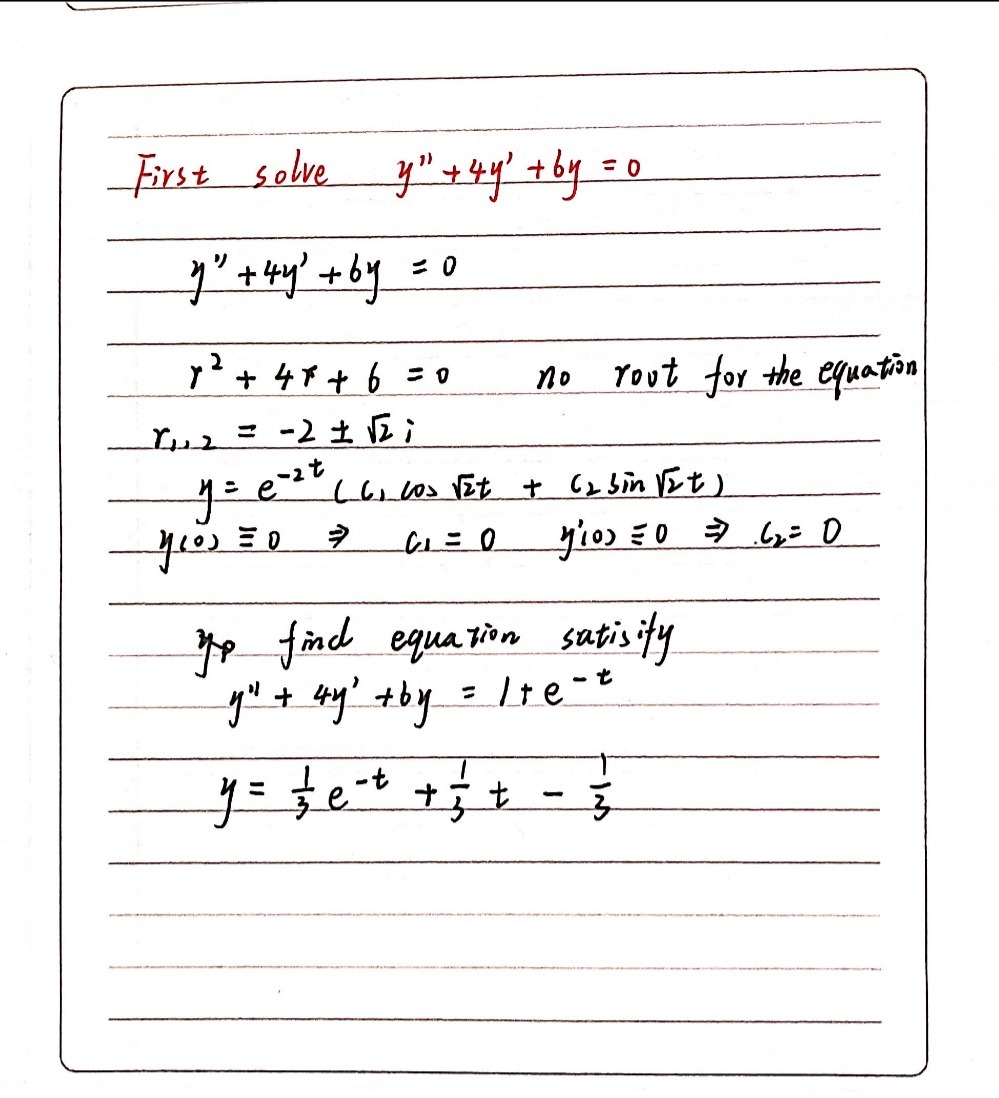 First solve y'' + 4y' + 6y = 0
y'' + 4y' + 6y = 0
r² + 4r + 6 = 0 no root for the equation
r₁,₂ = -2 ± √2 i
y = e^{-2t} (C₁ cos √2t + C₂ sin √2t)
y(0) ≡ 0 ⇒ C₁ = 0 y'(0) ≡ 0 ⇒ C₂ = 0
yp find equation satisify
y'' + 4y' + 6y = 1 + e^{-t}
y = 1/3 e^{-t} + 1/3 t - 1/3